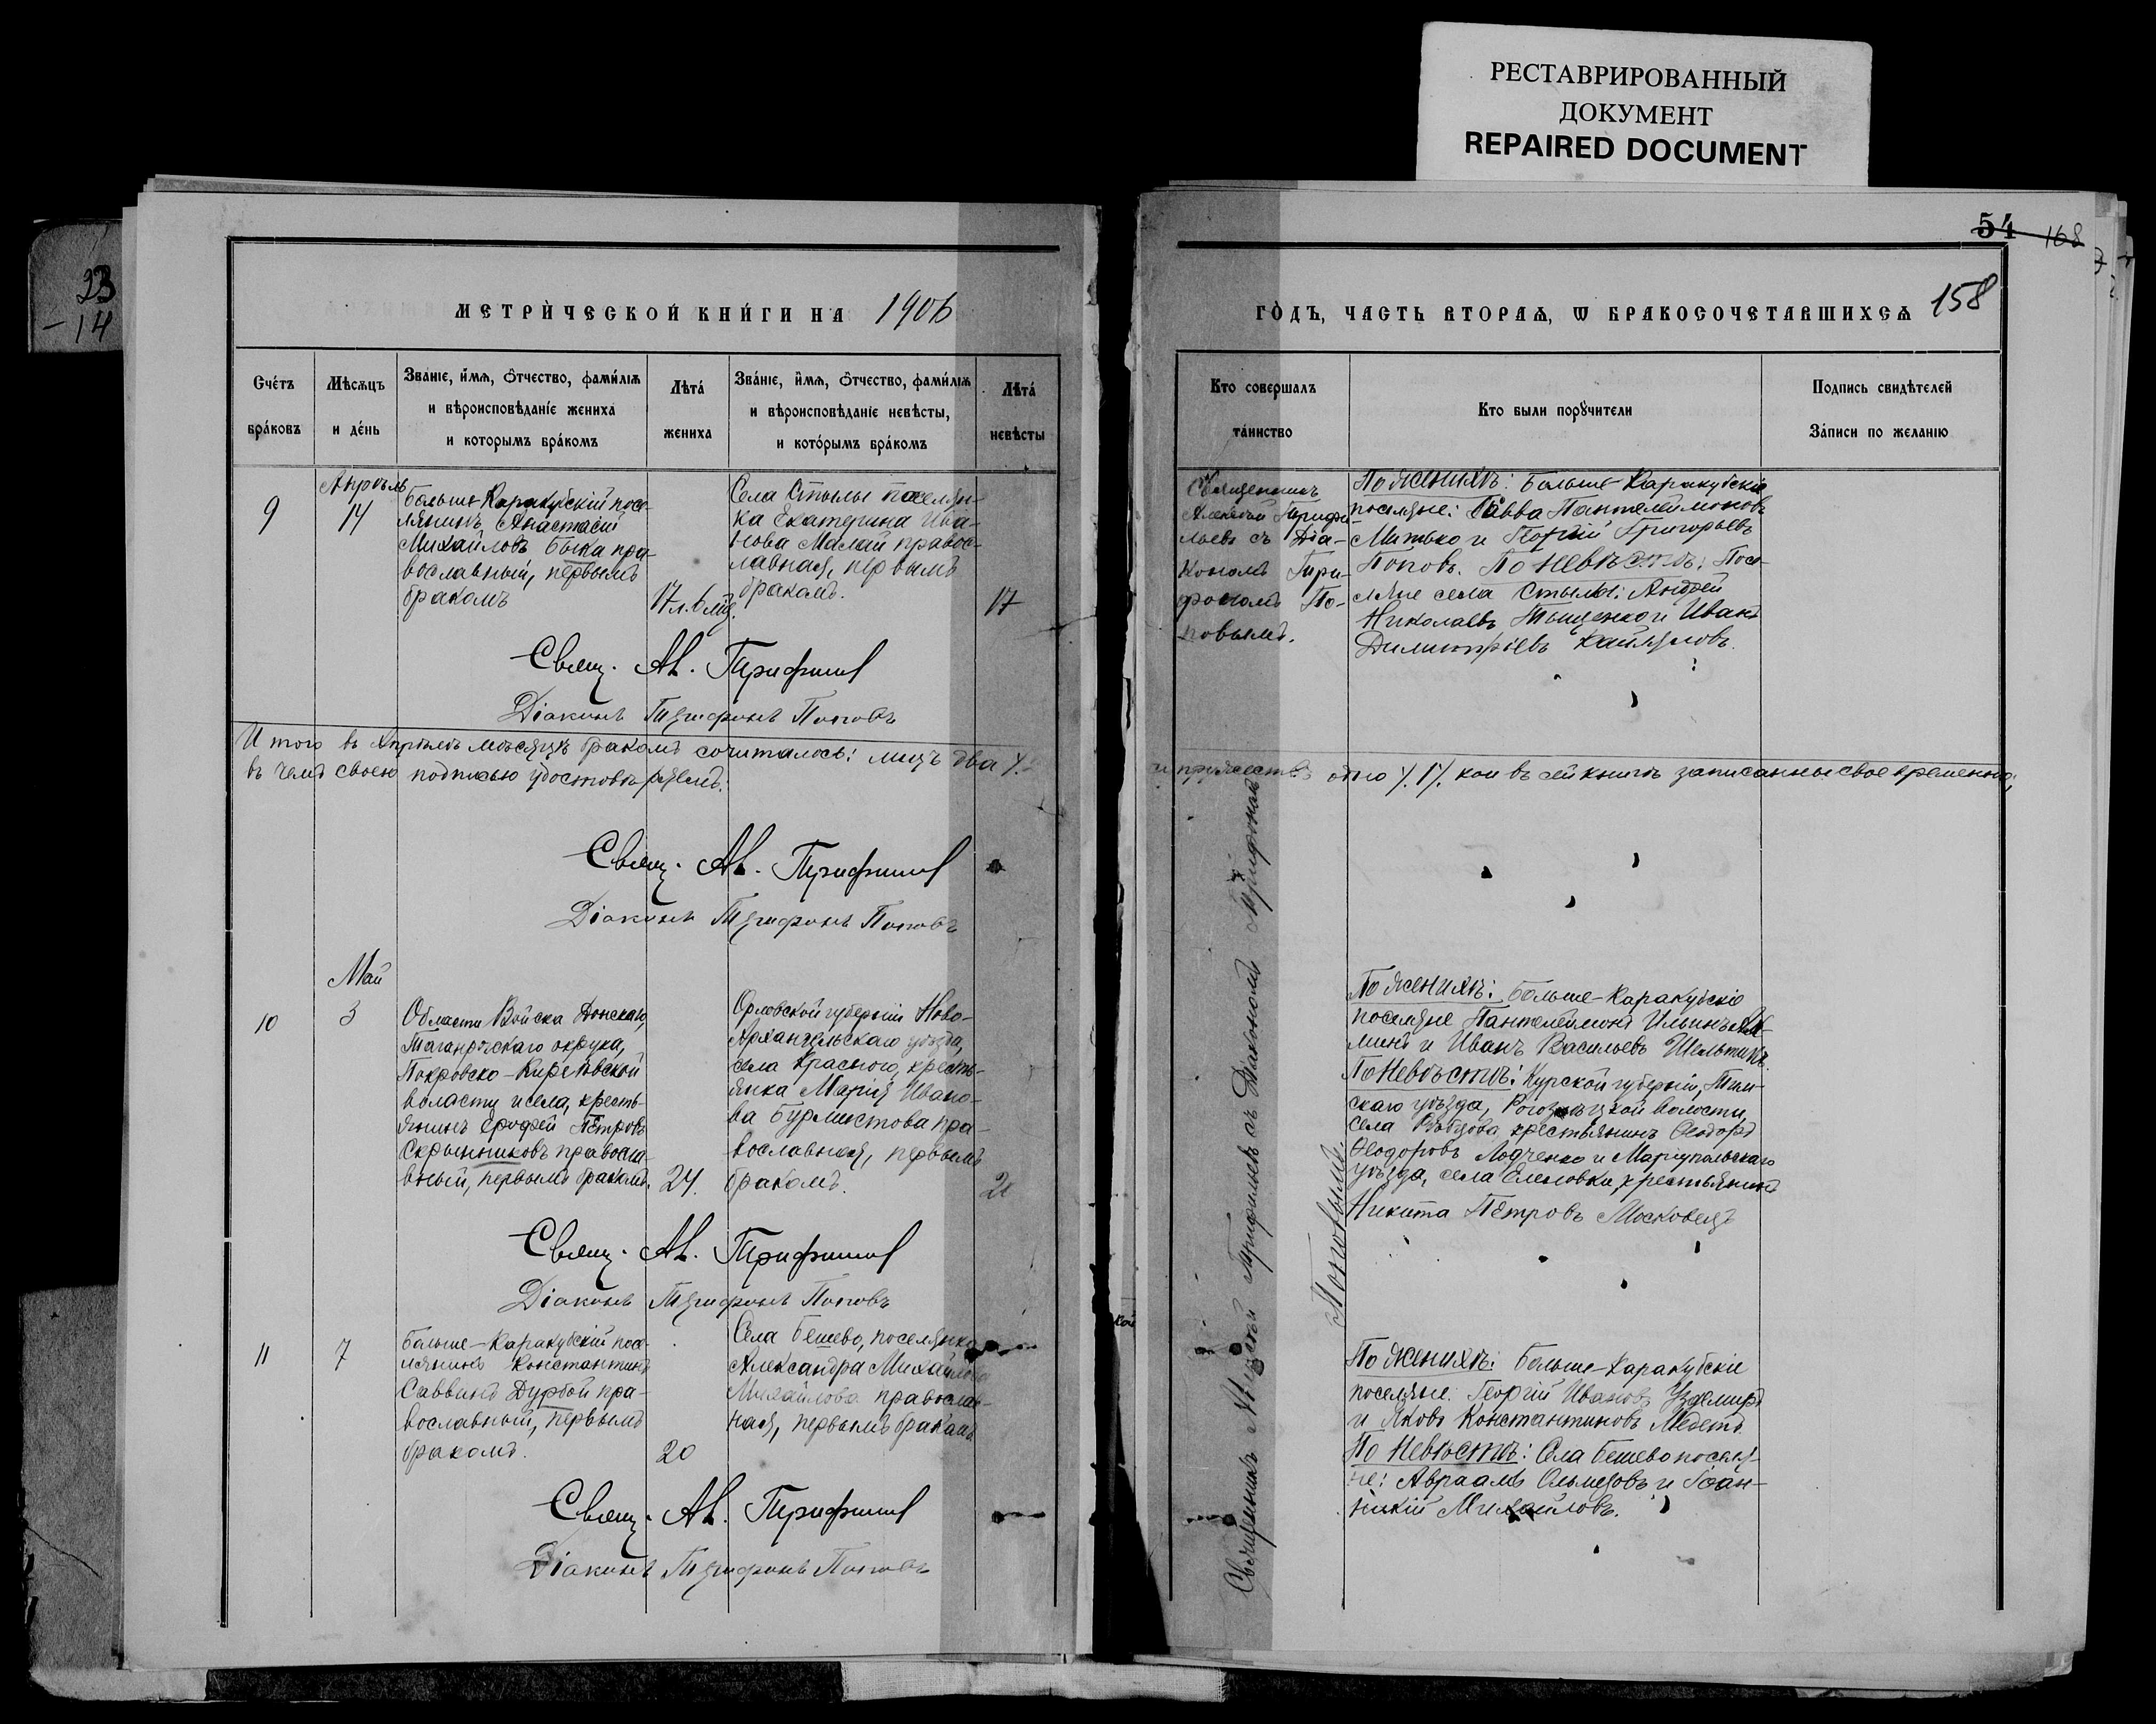 РЕСТАВРИРОВАННЫЙ
ДОКУМЕНТ
REPAIRED DOCUMENT
23
-14
54 168
158
МЕТРИЧЕСКОЙ КНИГИ НА 1906
ГОДЪ, ЧАСТЬ ВТОРАЯ, Ѡ БРАКОСОЧЕТАВШИХСЯ
Счетъ
браковъ
Мѣсяцъ
и день
Званіе, имя, отчество, фамилія
и вѣроисповѣданіе жениха
и которымъ бракомъ
Лѣта
жениха
Званіе, имя, отчество, фамилія
и вѣроисповѣданіе невѣсты,
и которымъ бракомъ
Лѣта
невѣсты
Кто совершалъ
таинство
Кто были поручители
Подпись свидѣтелей
Записи по желанію
9
Апрѣль
14
Больше-Каракубскій посе-
лянинъ Анастасій
Михайловъ Быка пра-
вославный, первымъ
бракомъ
17 л. 6 мѣс.
Села Стылы поселян-
ка Екатерина Ива-
нова Малай правос-
лавная, первымъ
бракомъ.
17
Священникъ
Алексѣй Трифи
льевъ съ Діа-
кономъ Три-
фономъ По-
повымъ.
По женихѣ: Больше-Каракубскіе
поселяне: Савва Пантелеймоновъ
Митько и Георгій Григорьевъ
Поповъ. По невѣстѣ: Посе-
ляне села Стылы: Андрей
Николаевъ Тыщенко и Иванъ
Димитріевъ
Свящ. Ал. Трифильев
Діаконъ Трифонъ Поповъ
Итого въ Апрѣлѣ мѣсяцѣ бракомъ сочиталось: лицъ два /.2
и супружествъ одно /.1/. кои въ сей книгѣ записанны своевременно;
въ чемъ своею подписью удостовѣряемъ:
Свящ. Ал. Трифильев
Діаконъ Трифонъ Поповъ
10
Май
3
Области Войска Донскаго,
Таганрогскаго округа,
Покровско-Киреевской
волости и села, кресть-
янинъ Ерофей Петровъ
Скрынниковъ правосла-
вный, первымъ бракомъ.
24.
Орловской губерніи Ново-
Архангельскаго уѣзда,
села Краснаго, кресть-
янка Марія Ивано-
ва Бурмистова пра-
вославная, первымъ
бракомъ.
Священникъ Алексѣй Трифильевъ съ Діакономъ Трифономъ
Поповымъ.
По женихѣ: Больше-Каракубскіе
поселяне Пантелеймонъ Ильинъ
и Иванъ Васильевъ
По невѣстѣ: Курской губерніи, Тим-
скаго уѣзда, Рогозецкой волости,
села крестьянинъ Ѳеодоръ
Ѳеодоровъ Лодченко и Маріупольскаго
уѣзда, села Еленовки, крестьянинъ
Никита Петровъ Московецъ
Свящ. Ал. Трифильев
Діаконъ Трифонъ Поповъ
11
7
Больше-Каракубскій посе-
лянинъ Константинъ
Саввинъ Дурбой пра-
вославный, первымъ
бракомъ.
20
Села Бешево, поселянка
Александра Михайлова
Михайлова православ-
ная, первымъ бракомъ
По женихѣ: Больше-Каракубскіе
поселяне: Георгій Ивановъ Уздемиръ
и Яковъ Константиновъ Медетъ.
По невѣстѣ: Села Бешево поселя-
не: Авраамъ Ельмезовъ и Іоан-
никій Михайловъ.
Свящ. Ал. Трифильев
Діаконъ Трифонъ Поповъ